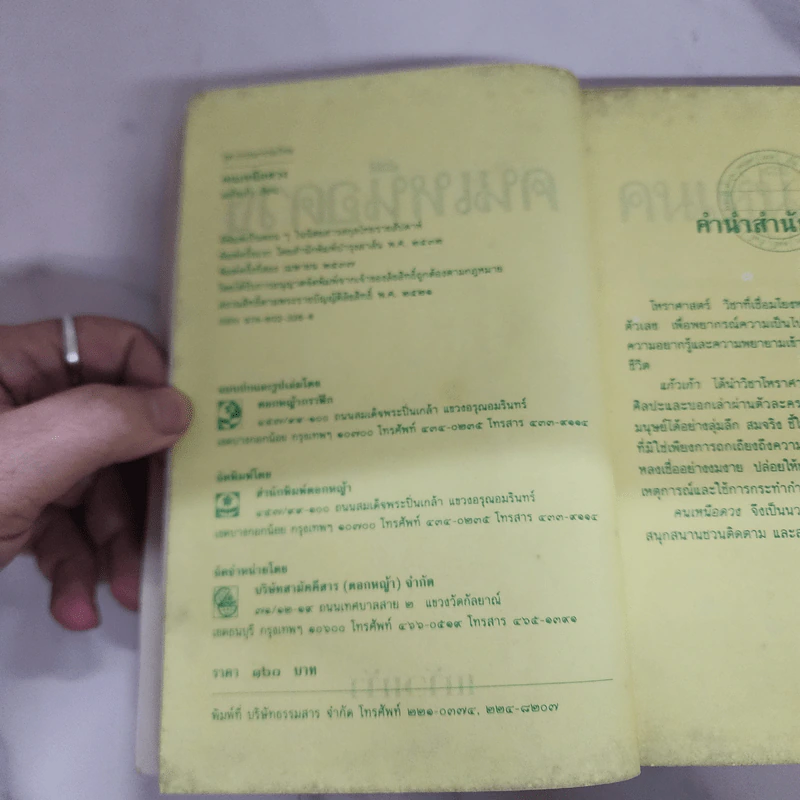 คนเหนือดวง
แก้วเก้า เขียน
พิมพ์ครั้งแรก โดยสำนักพิมพ์บำรุงสาส์น พ.ศ. ๒๕๓๒
พิมพ์ครั้งที่สอง เมษายน ๒๕๓๗
โดยได้รับการอนุญาตจัดพิมพ์จากเจ้าของลิขสิทธิ์ถูกต้องตามกฎหมาย
สงวนสิทธิ์ตามพระราชบัญญัติลิขสิทธิ์ พ.ศ. ๒๕๒๑
ออกแบบและรูปเล่มโดย
ดอกหญ้ากราฟิก
ถนนสมเด็จพระปิ่นเกล้า แขวงอรุณอมรินทร์
เขตบางกอกน้อย กรุงเทพฯ ๑๐๗๐๐ โทรศัพท์ ๔๓๔-๐๒๓๕ โทรสาร ๔๓๓-๙๑๑๔
จัดพิมพ์โดย
สำนักพิมพ์ดอกหญ้า
ถนนสมเด็จพระปิ่นเกล้า แขวงอรุณอมรินทร์
เขตบางกอกน้อย กรุงเทพฯ ๑๐๗๐๐ โทรศัพท์ ๔๓๔-๐๒๓๕ โทรสาร ๔๓๓-๙๑๑๔
จัดจำหน่ายโดย
บริษัทสามัคคีสาร (ดอกหญ้า) จำกัด
๓๑/๑๒-๑๙ ถนนเทศบาลสาย ๒ แขวงวัดกัลยาณ์
เขตธนบุรี กรุงเทพฯ ๑๐๖๐๐ โทรศัพท์ ๔๖๖-๐๕๑๙ โทรสาร ๔๖๕-๑๓๙๑
ราคา ๑๒๐ บาท
พิมพ์ที่ บริษัทธรรมสาร จำกัด โทรศัพท์ ๒๒๑-๐๓๗๔, ๒๒๔-๘๒๐๗
คำนำสำนัก
โหราศาสตร์ วิชาที่เชื่อมโยง
ตัวเลข เพื่อพยากรณ์ความเป็นไป
ความอยากรู้และความพยายามเข้า
ชีวิต
แก้วเก้า ได้นำวิชาโหรา
ศิลปะและบอกเล่าผ่านตัวละคร
มนุษย์ได้อย่างลุ่มลึก สมจริง ชี้
ที่มิใช่เพียงการถกเถียงถึงความ
หลงเชื่ออย่างงมงาย ปล่อยให้
เหตุการณ์และใช้การกระทำ
คนเหนือดวง จึงเป็น
สนุกสนานชวนติดตาม และ